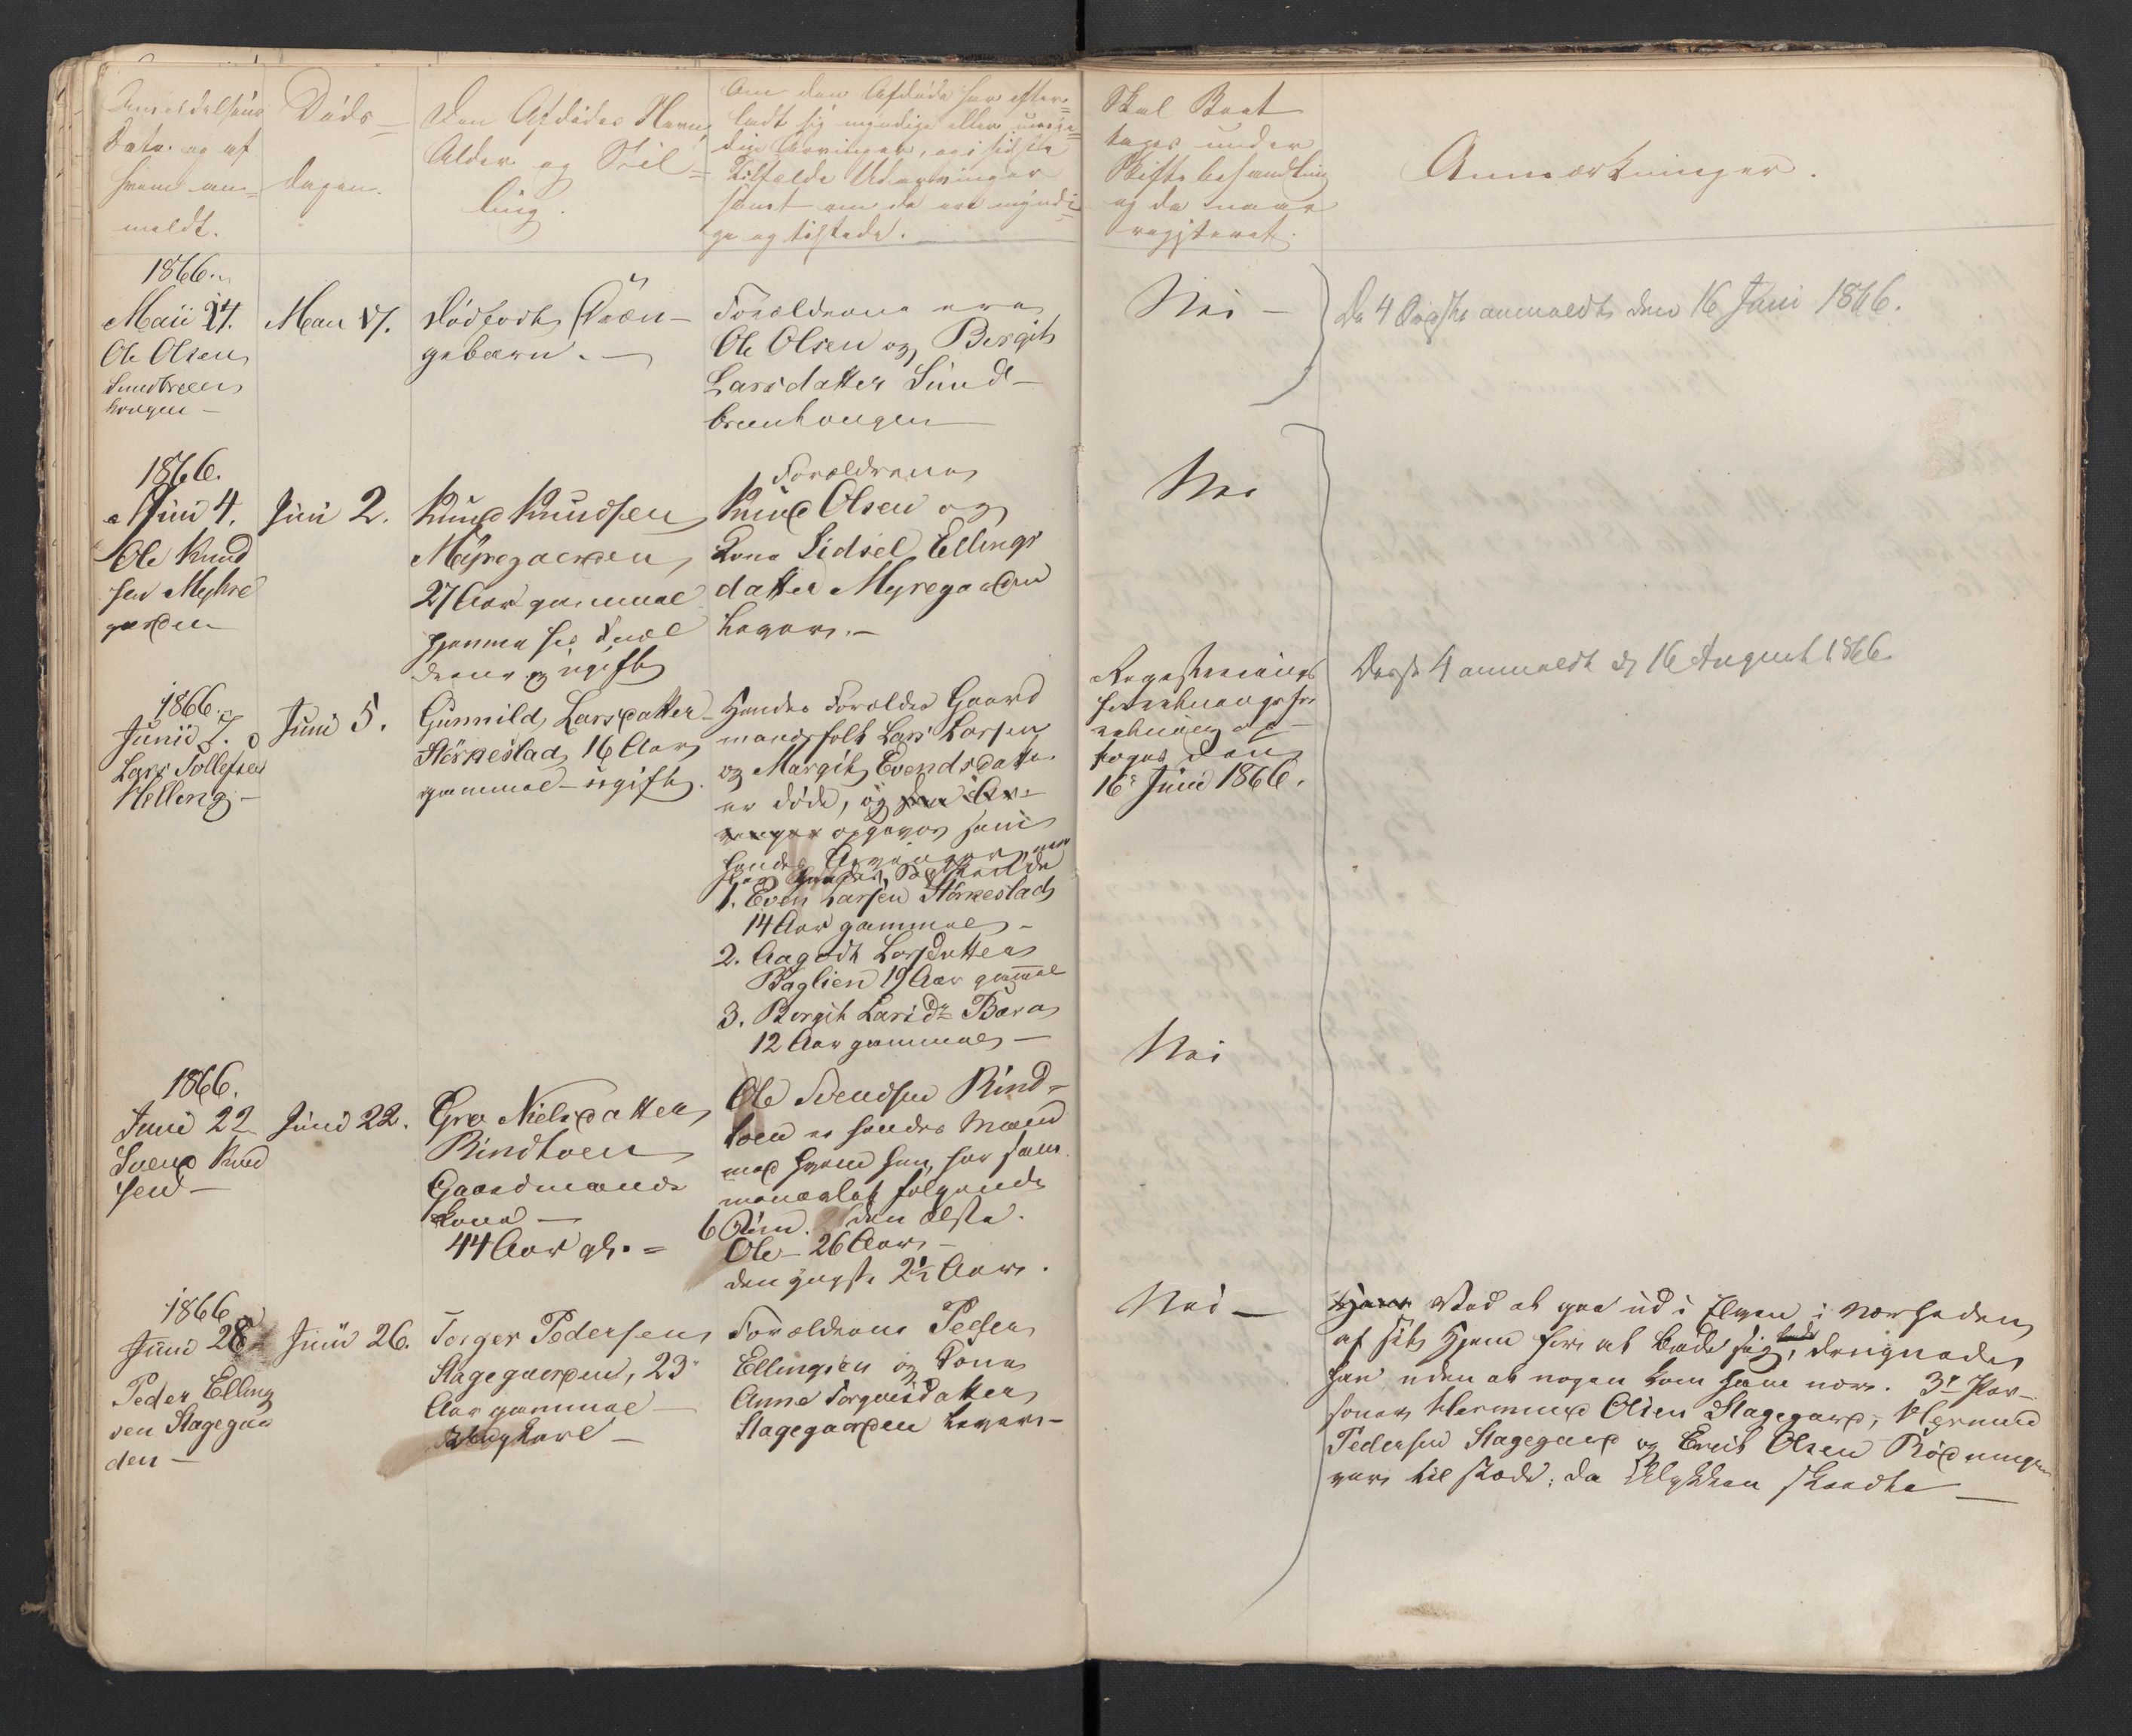 Anmeldelsens
Dato og af
hvem an=
meldt.
Döds-
dagen.
Den Afdödes Navn,
Alder og Stil=
ling.
Om den Afdöde har efter=
ladt sig myndige eller umyn=
dige Arvinger, og i sidste
Tilfælde Udarvinger
samt om de ere myndi=
ge og tilstede.
Skal Boet
tages under
Skiftebehandling
og da naar
registeret.
Anmærkninger.
1866.
Maii 24.
Ole Olsen
Sundbreen
hougen -
Mai 17.
Dödfödt Dren-
gebarn. -
Forældrene ere
Ole Olsen og Bergit
Larsdatter Sund-
breenhougen
Nei -
De 4 Øverste anmeldte den 16 Juni 1866.
1866.
Juni 4.
Ole Knud
sen Myhre
garden
Juni 2.
Knud Knudsen
Myregaarden
27 Aar gammel
hjemme hos Foræl
drene og ugift
Forældrene
Knud Olsen og
Kone Sidsel Ellings
datter Myregarden
lever. -
Nei
1866.
Junii 7.
Lars Tollefsen
Helling -
Juni 5.
Gunnild Larsdatter
Störkestad, 16 Aar
gammel - ugift.
Hendes Forældre Gaard
mandsfolk Lars Larsen
og Margit Evendsdatter
er döde, og den Ar-
vinger opgaves som
hendes Arvinger
hendes Sødskende
1. Even Larsen Störkestad
14 Aar gammel -
2. Aagodt Larsdatter
Baglien 19 Aar gammel
3. Bergit Larsdr Bera
12 Aar gammel -
Registrerings
forretning
toges den
16de Juni 1866.
Derste 4 anmeldt d 16 August 1866
1866.
Juni 22
Svend Knud
sen -
Juni 22.
Gro Nielsdatter
Rindhoen
Gaardmands
Kone -
44 Aar gl. =
Ole Svendsen Rind-
hoen er hendes Mand
med hvem hun har sam
menavlet følgende
6 Börn. den ælste.
Ole - 26 Aar -
den yngste 2½ Aar.
Nei
1866
Juni 28
Peder Elling
sen Stagegaa
den -
Juni 26.
Torger Pedersen
Stagegaarden, 23
Aar gammel -
Ungkarl -
Forældrene Peder
Ellingsen og Kone
Anne Torgersdatter
Stagegaarden lever -
Nei -
Ved at gaa ud i Elven i nærheden
af sit Hjem for at bade sig, druknede
han uden at nogen kom ham nær. 3de Per-
soner Hermund Olsen Stagegard, Hermund
Pedersen Stagegard og Erik Olsen Rödnungen
var til stede, da Ulykken skeedte -